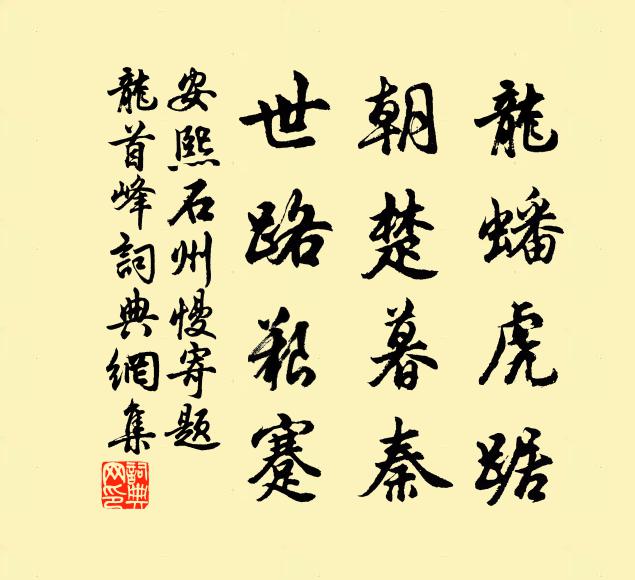 龍蟠虎踞
朝楚暮秦
世路艱蹇
安熙石州慢寄題
龍首峰詞典網集
詞典網印